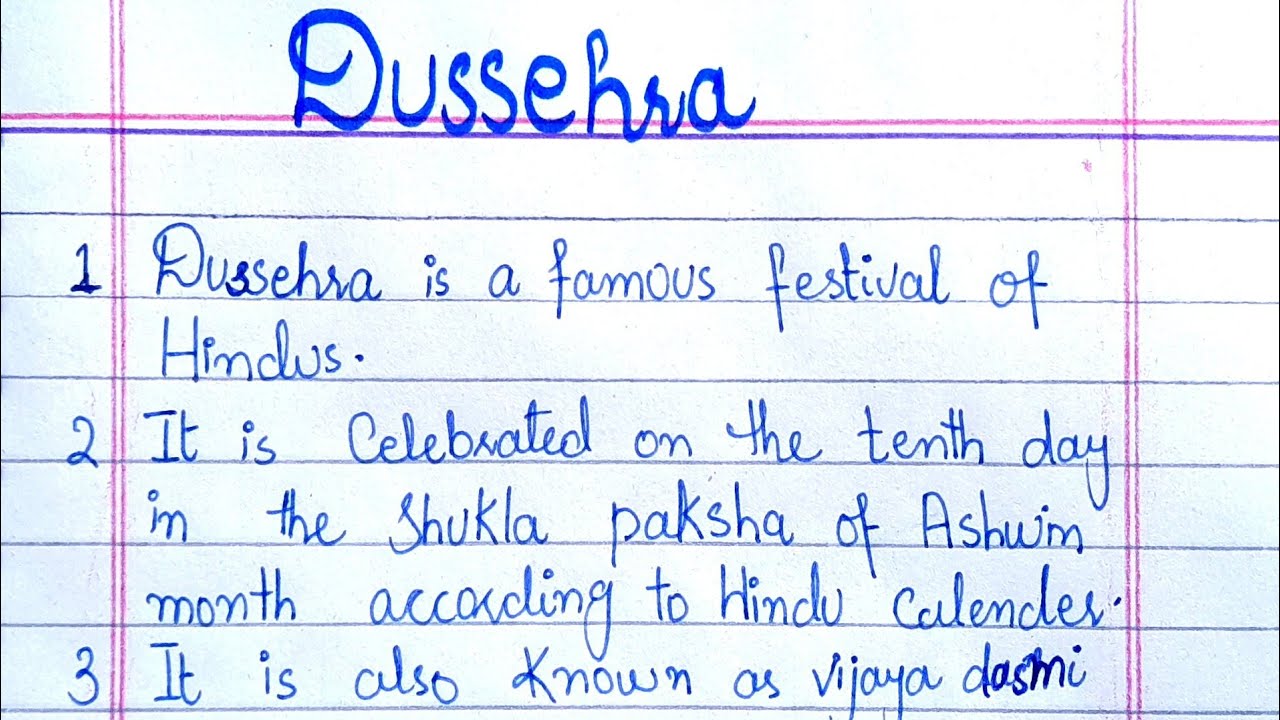 Dussehra
1 Dussehra is a famous festival of
Hindus.
2 It is Celebrated on the tenth day
in the Shukla paksha of Ashwin
month according to Hindu Calender.
3 It is also Known as vijaya dasmi